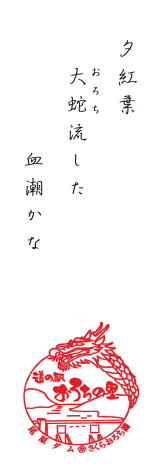 夕紅葉
大蛇流した
おろち
血潮かな
道の駅
おろちの里
尾原ダム
さくらおろち湖